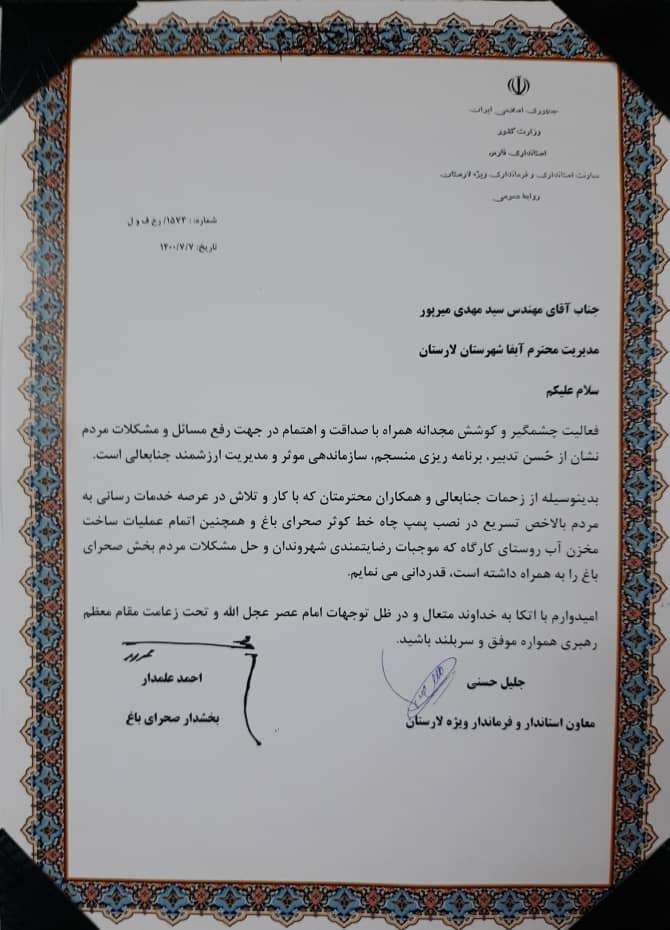 جمهوری اسلامی ایران
وزارت کشور
استانداری فارس
معاونت استانداری و فرمانداری ویژه لارستان
روابط عمومی
شماره: ۱۵۷۳/ رع ف و ل
تاریخ: ۱۴۰۰/۷/۷
جناب آقای مهندس سید مهدی میرپور
مدیریت محترم آبفا شهرستان لارستان
سلام علیکم
فعالیت چشمگیر و کوشش مجدانه همراه با صداقت و اهتمام در جهت رفع مسائل و مشکلات مردم
نشان از حُسن تدبیر، برنامه ریزی منسجم، سازماندهی موثر و مدیریت ارزشمند جنابعالی است.
بدینوسیله از زحمات جنابعالی و همکاران محترمتان که با کار و تلاش در عرصه خدمات رسانی به
مردم بالاخص تسریع در نصب پمپ چاه خط کوثر صحرای باغ و همچنین اتمام عملیات ساخت
مخزن آب روستای کارگاه که موجبات رضایتمندی شهروندان و حل مشکلات مردم بخش صحرای
باغ را به همراه داشته است، قدردانی می نمایم.
امیدوارم با اتکا به خداوند متعال و در ظل توجهات امام عصر عجل الله و تحت زعامت مقام معظم
رهبری همواره موفق و سربلند باشید.
جلیل حسنی
احمد علمدار
معاون استاندار و فرماندار ویژه لارستان
بخشدار صحرای باغ